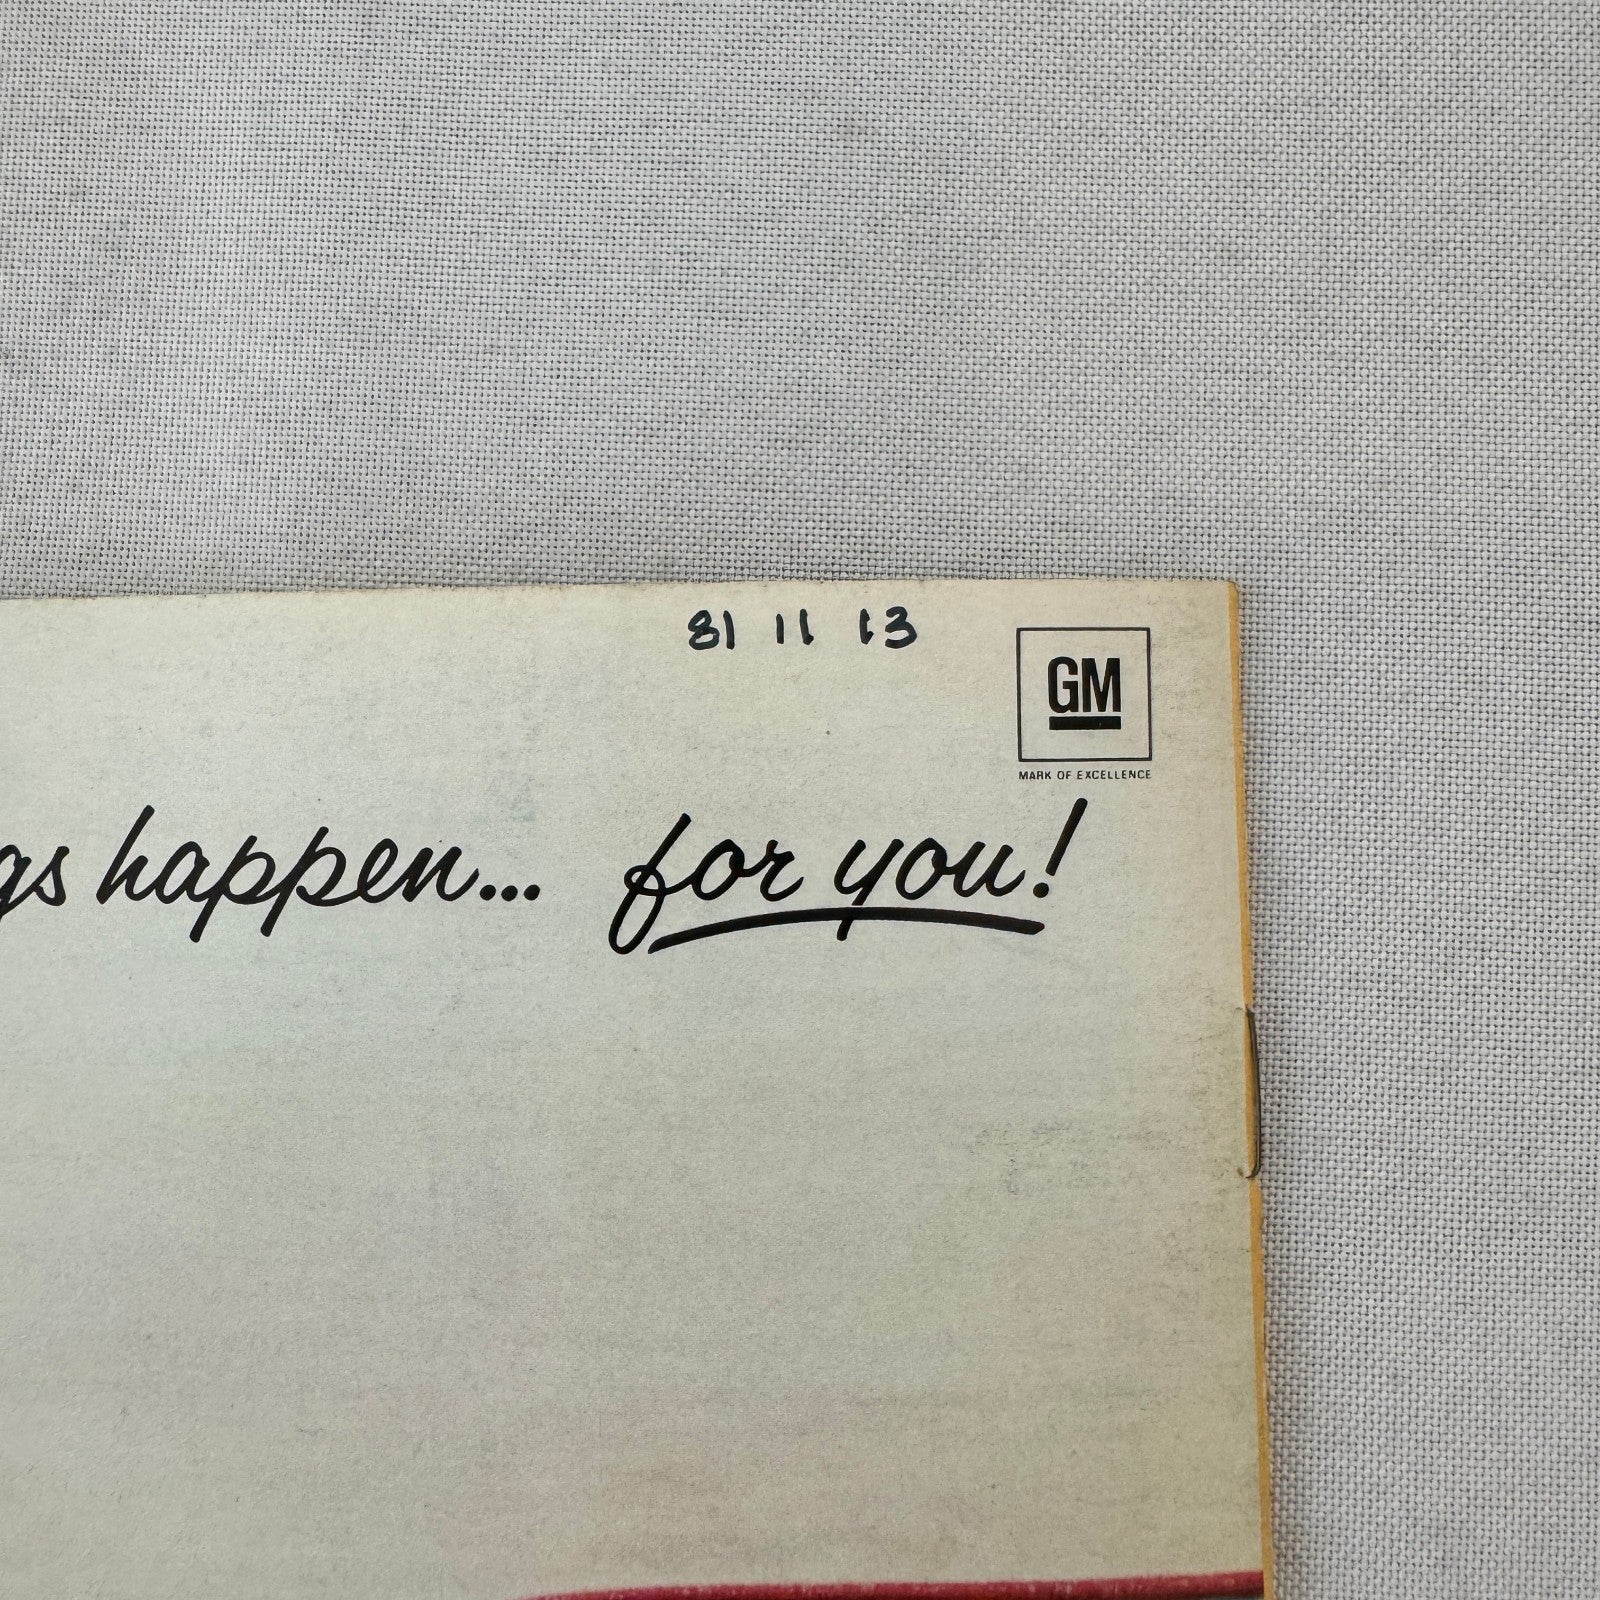 81 11 13
GM
MARK OF EXCELLENCE
gs happen... for you!